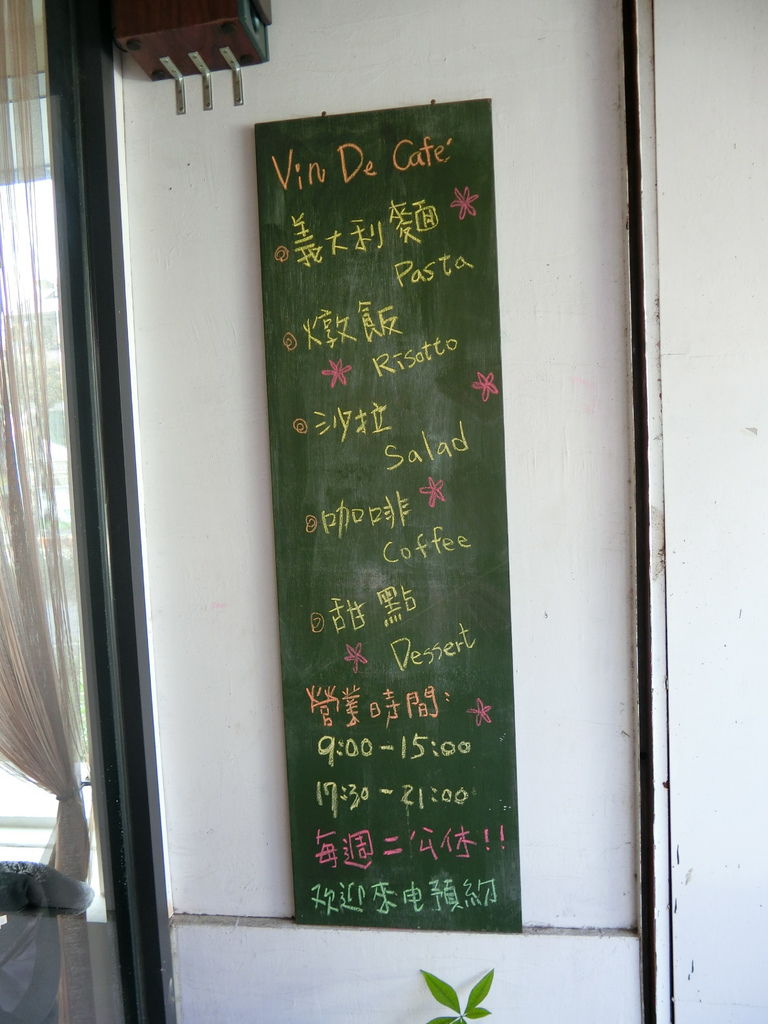 Vin De Café
義大利麵
Pasta
燉飯
Risotto
沙拉
Salad
咖啡
Coffee
甜點
Dessert
營業時間:
9:00-15:00
17:30-21:00
每週二公休!!
欢迎來电預約